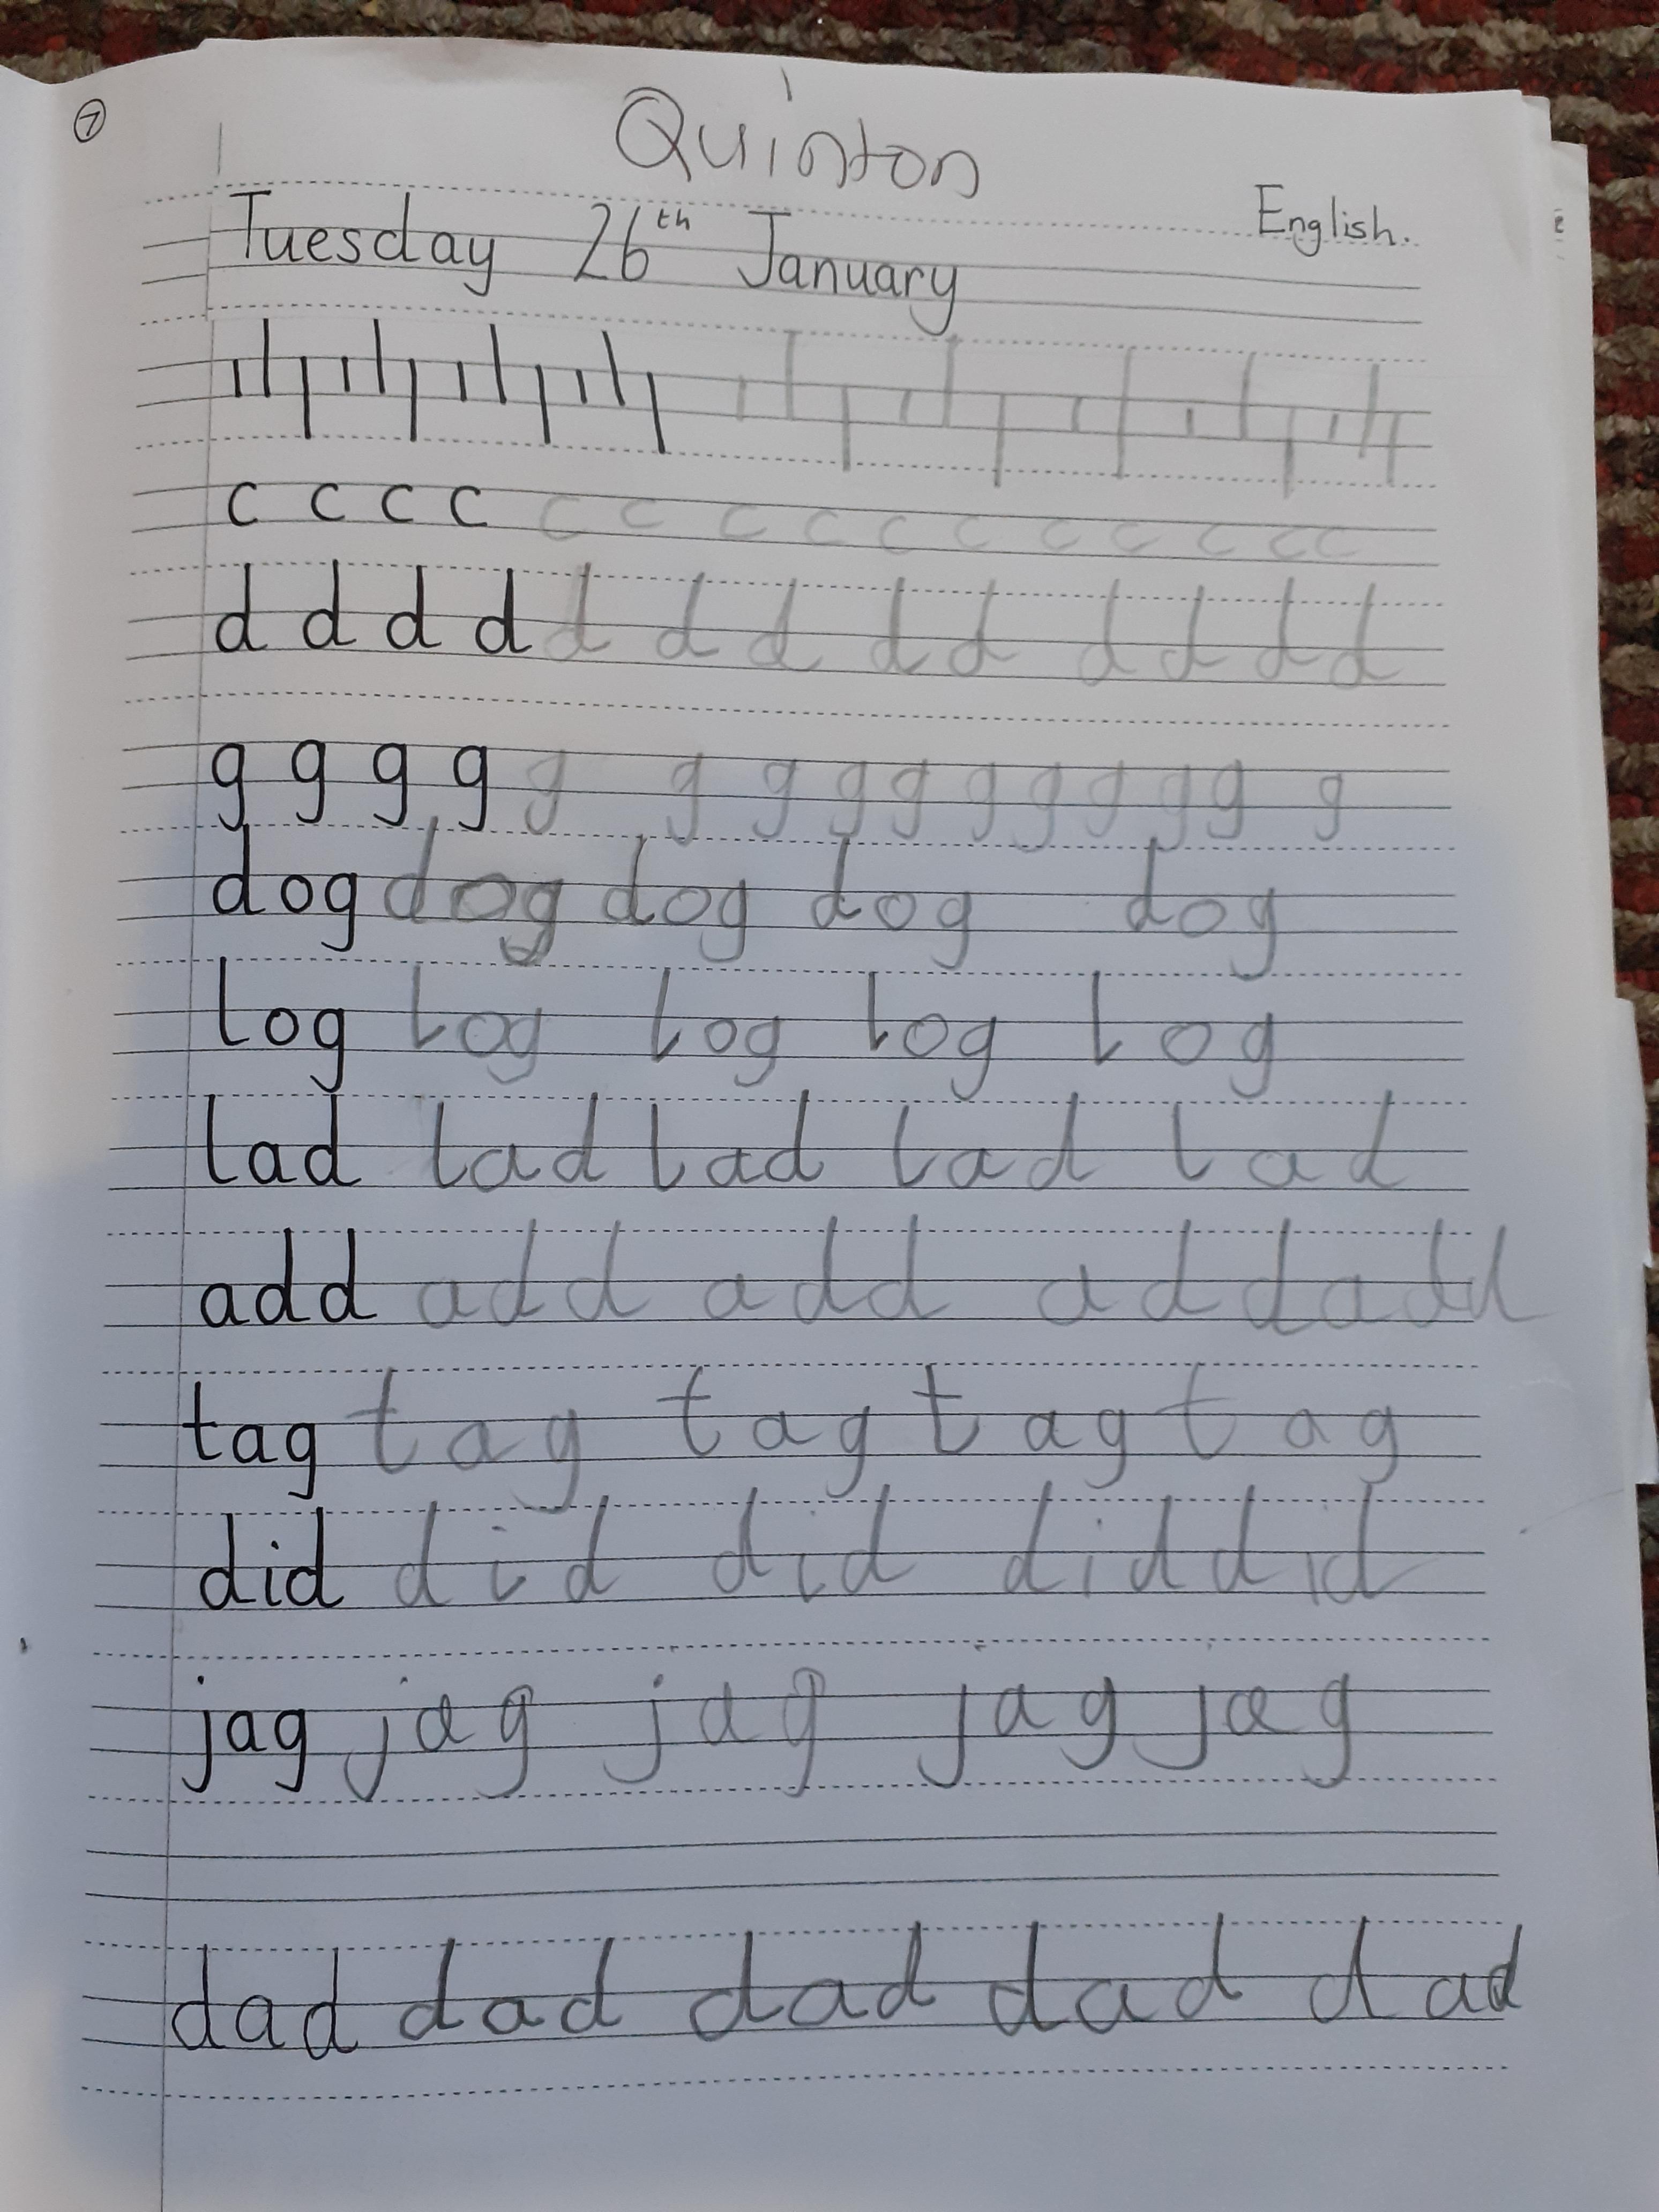 7
Quinton
Tuesday 26th January English.
c c c c c c c c c c c c c c c
d d d d d d d d d d d d d
g g g g g g g g g g g g g g g
dog dog dog dog dog
log log log log log
lad lad lad lad lad
add add add add add
tag tag tag tag tag
did did did did did
jag jag jag jag jag
dad dad dad dad dad